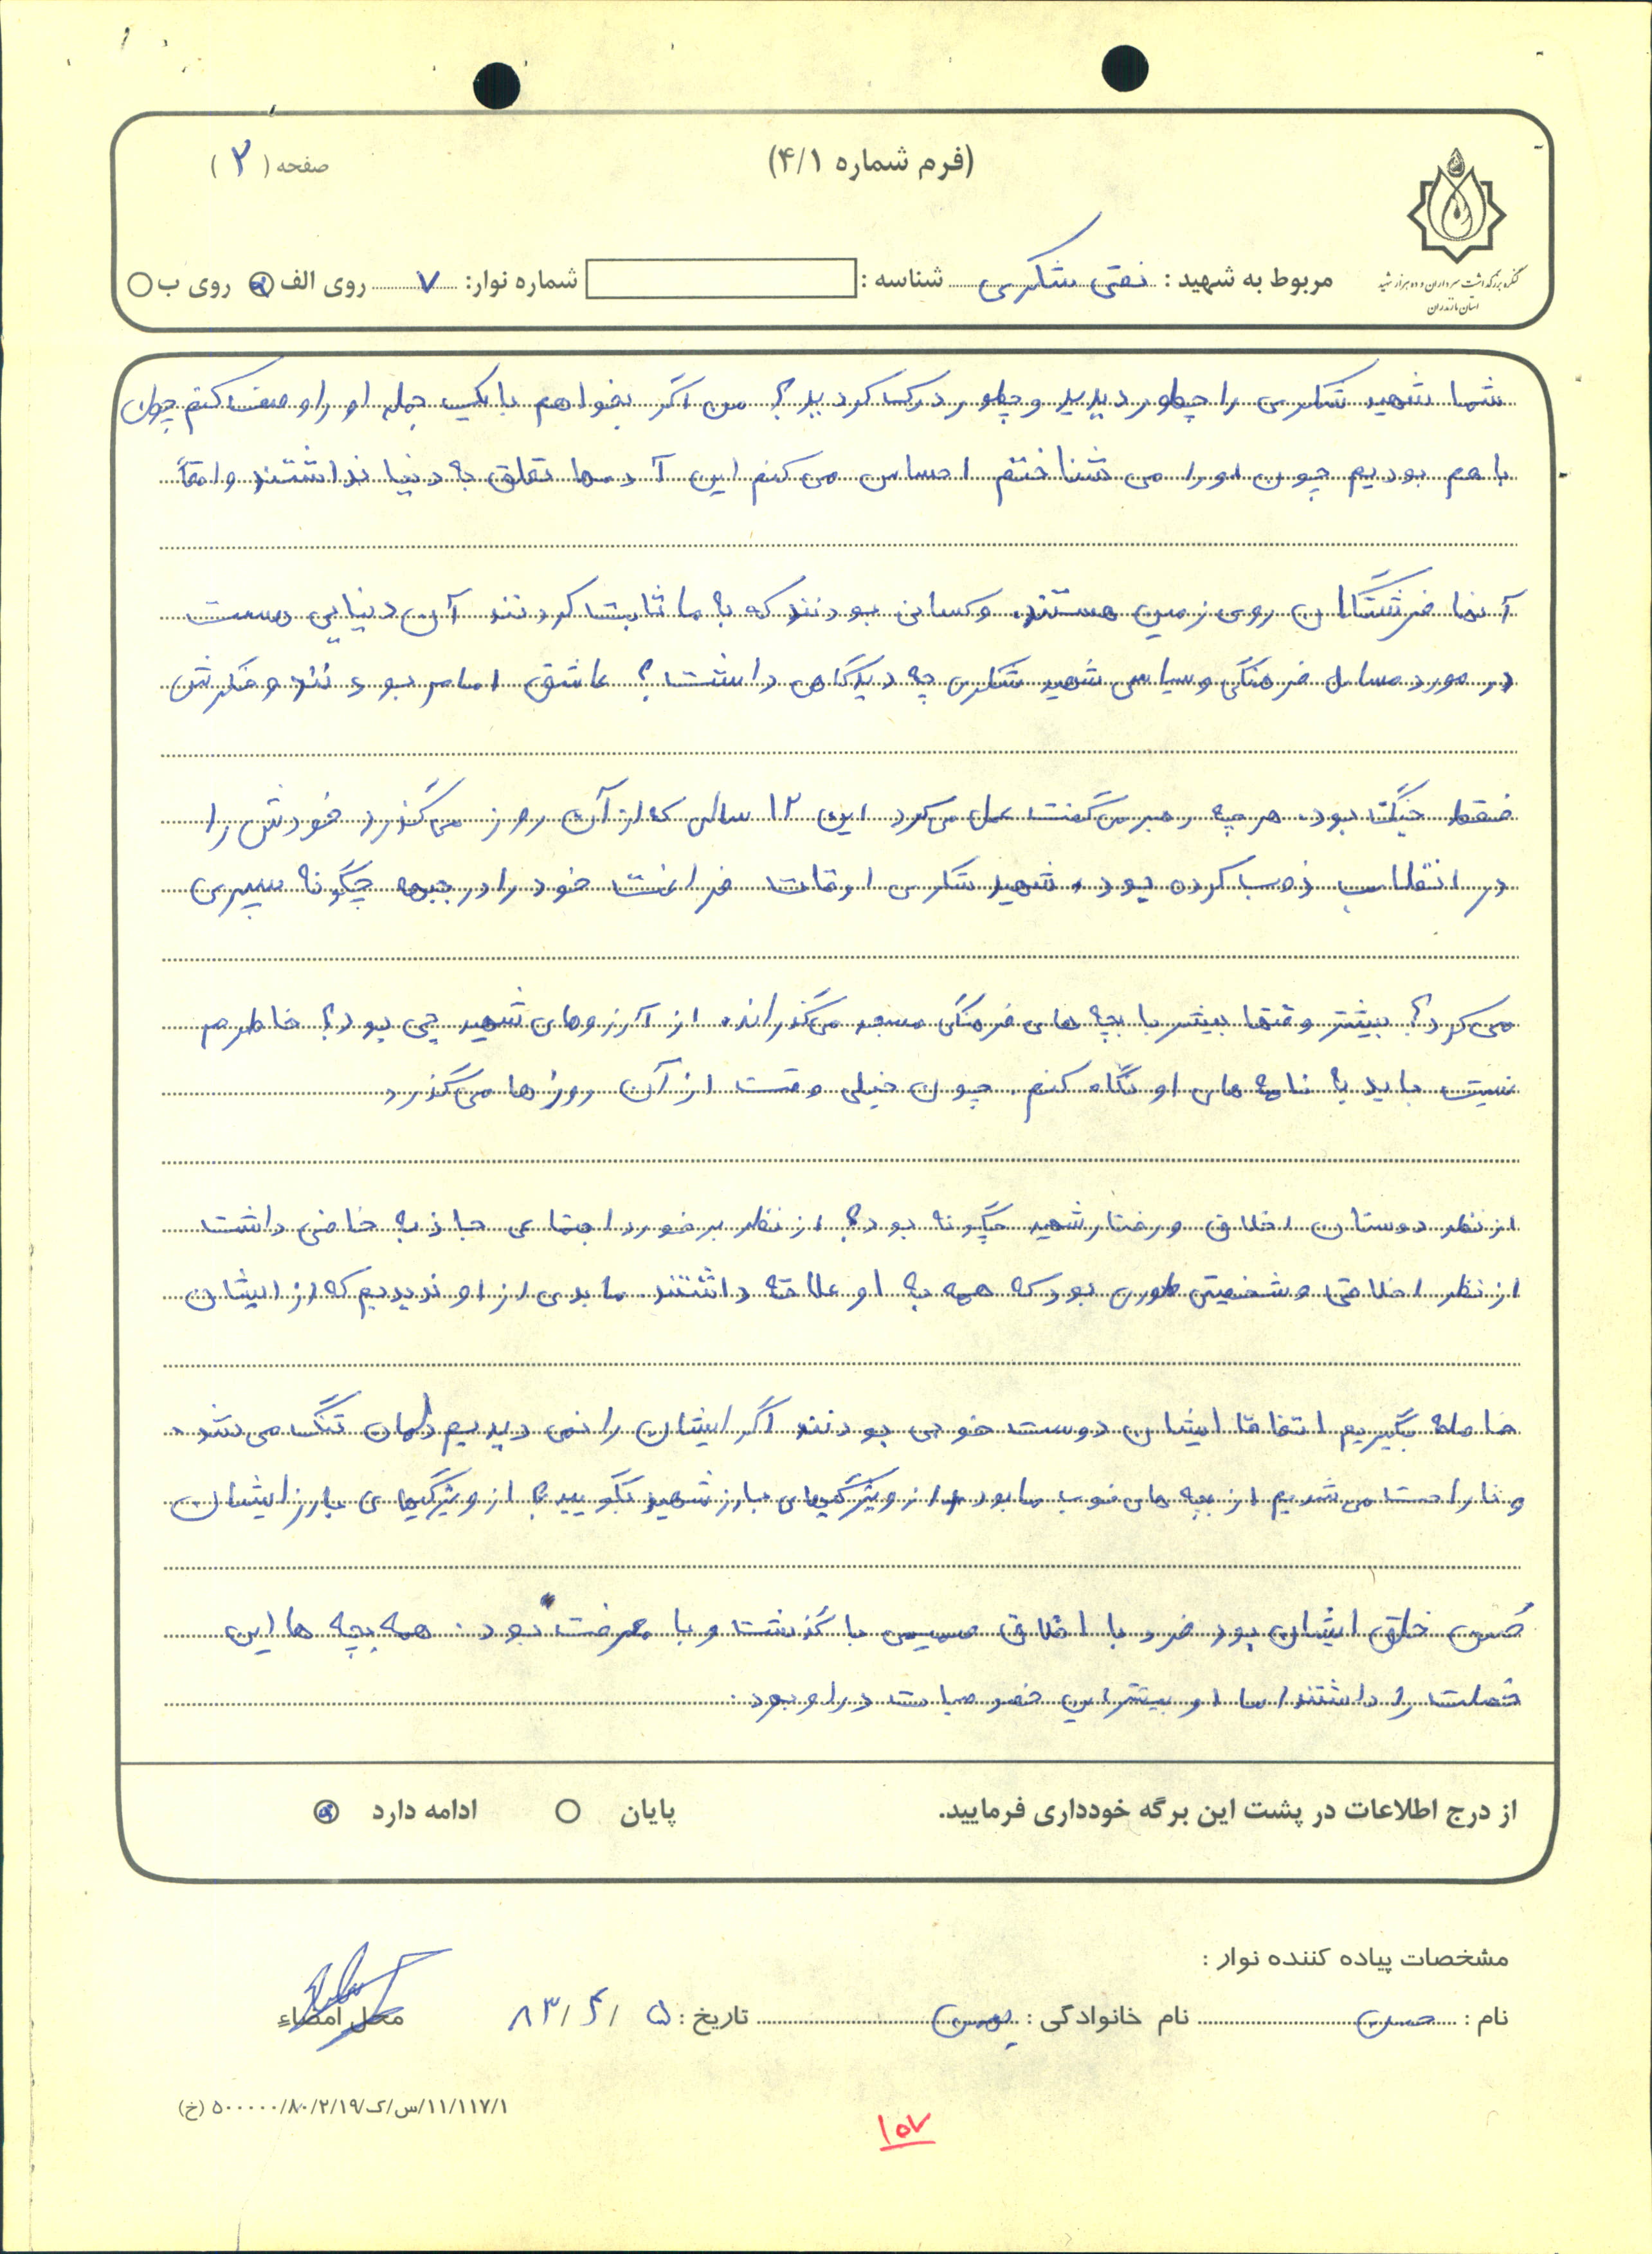 (فرم شماره ۴/۱)
صفحه ( ۲ )
کنگره بزرگداشت سرداران و ده هزار شهید
استان مازندران
مربوط به شهید : نقی شکری شناسه : شماره نوار: ۷ روی الف روی ب
شما شهید شکری را چطور دیدید و چطور درک کردید؟ من اگر بخواهم با یک جمله او را وصف کنم چون
با هم بودیم چون او را می شناختم احساس می کنم این آدمها تعلق به دنیا نداشتند واقعاً
آنها فرشتگان روی زمین هستند. و کسانی بودند که به ما ثابت کردند آن دنیایی هست
در مورد مسایل فرهنگی و سیاسی شهید شکری چه دیدگاهی داشت؟ عاشق امام بودند و فکرش
فقط جنگ بود. هر چه رهبر می گفت عمل می کرد این ۱۲ سالی که از آن روز می گذرد خودش را
در انقلاب ذوب کرده بود، شهید شکری اوقات فراغت خود را در جبهه چگونه سپری
می کرد؟ بیشتر وقتها بیشتر با بچه های فرهنگی مسجد می گذراند. از آرزوهای شهید چی بود؟ خاطرم
نیست باید به نامه های او نگاه کنم. چون خیلی وقت از آن روزها می گذرد
از نظر دوستان اخلاق و رفتار شهید چگونه بود؟ از نظر برخورد اجتماعی جاذبه خاصی داشت
از نظر اخلاقی و شخصیتی طوری بود که همه به او علاقه داشتند. ما بدی از او ندیدیم که از ایشان
فاصله بگیریم اتفاقا ایشان دوست خوبی بودند اگر ایشان را نمی دیدیم دلمان تنگ می شد.
و ناراحت می شدیم از بچه های خوب ما بود از ویژگیهای بارز شهید بگویید؟ از ویژگیهای بارز ایشان
حُسن خلق ایشان بود فرد با اخلاق صمیمی با گذشت و با معرفت بود. همه بچه ها این
خصلت را داشتند اما او بیشتر این خصوصیات در او بود.
از درج اطلاعات در پشت این برگه خودداری فرمایید. پایان ادامه دارد
مشخصات پیاده کننده نوار :
نام : حسن نام خانوادگی : تاریخ : ۵ / ۴ / ۸۳ محل امضاء
۵۰۰۰۰۰/۸۰/۲/۱۹/س/ک/۱۱/۱۱۷/۱ (خ)
۱۵۷